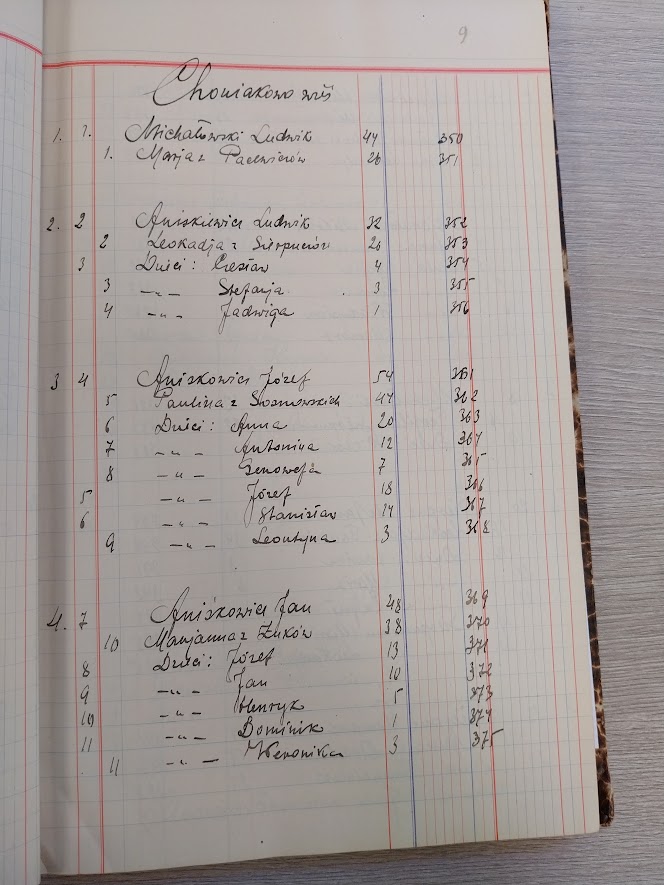 9
Choniakowo wieś
1. 1. Michałowski Ludwik 44 350
1. Marja z Pacewiczów 26 351
2. 2 Aniskiewicz Ludwik 32 352
2 Leokadja z 26 353
3 Dzieci: Czesław 4 354
3 -„- Stefanja 3 355
4 -„- Jadwiga 1 356
3 4 Aniśkowicz Józef 54 361
5 Paulina z Sosnowskich 47 362
6 Dzieci: Anna 20 363
7 -„- Antonina 12 364
8 -„- Genowefa 7 365
5 -„- Józef 18 366
6 -„- Stanisław 14 367
9 -„- Leontyna 3 368
4. 7 Aniśkowicz Jan 48 369
10 Marjanna z Żuków 38 370
8 Dzieci: Józef 13 371
9 -„- Jan 10 372
10 -„- Henryk 5 373
11 -„- Dominik 1 374
11 -„- Weronika 3 375